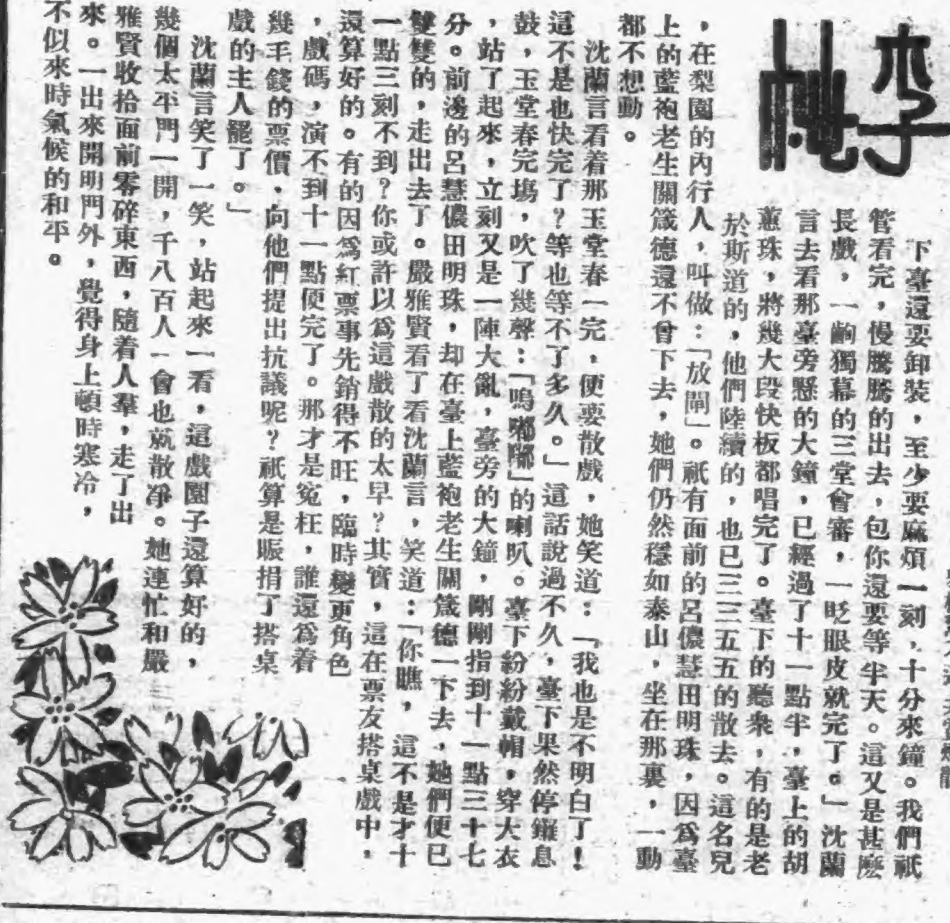 下臺還要卸裝，至少要麻煩一刻，十分來鐘。我們祇
管看完，慢騰騰的出去，包你還要等半天。這又是甚麽
長戲，一齣獨幕的三堂會審，一眨眼皮就完了。」沈蘭
言去看那臺旁懸的大鐘，已經過了十一點半，臺上的胡
蕙珠，將幾大段快板都唱完了。臺下的聽衆，有的是老
於斯道的，他們陸續的，也已三三五五的散去。這名兒
，在梨園的內行人，叫做：「放閘」。祇有面前的呂儂慧田明珠，因爲臺
上的藍袍老生關箴德還不曾下去，她們仍然穩如泰山，坐在那裏，一動
都不想動。
沈蘭言看着那玉堂春一完，便要散戲，她笑道：「我也是不明白了！
這不是也快完了？等也等不了多久。」這話說過不久，臺下果然停鑼息
鼓，玉堂春完塲，吹了幾聲：「嗚嘟嘟」的喇叭。臺下紛紛戴帽，穿大衣
，站了起來，立刻又是一陣大亂，臺旁的大鐘，剛剛指到十一點三十七
分。前邊的呂慧儂田明珠，却在臺上藍袍老生關箴德一下去，她們便已
雙雙的，走出去了。嚴雅賢看了看沈蘭言，笑道：「你瞧，這不是才十
一點三刻不到？你或許以爲這戲散的太早？其實，這在票友搭桌戲中，
還算好的。有的因爲紅票事先銷得不旺，臨時變更角色
，戲碼，演不到十一點便完了。那才是寃枉，誰還爲着
幾毛錢的票價，向他們提出抗議呢？祇算是賑捐了搭桌
戲的主人罷了。」
沈蘭言笑了一笑，站起來一看，這戲園子還算好的，
幾個太平門一開，千八百人一會也就散淨。她連忙和嚴
雅賢收拾面前零碎東西，隨着人羣，走了出
來。一出來開明門外，覺得身上頓時寒冷，
不似來時氣候的和平。